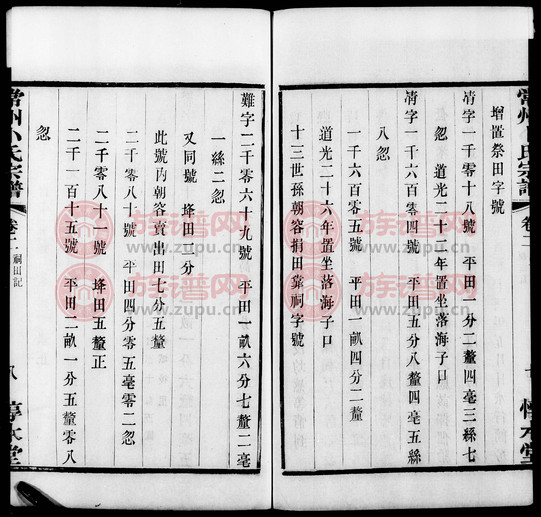 增置祭田字號
情字一千零十八號　平田一分二釐四毫三絲七
忽　道光二十二年置坐落海子口
情字一千六百零四號　平田五分八釐四毫五絲
八忽
情字一千六百零五號　平田一畝四分二釐
道光二十六年置坐落海子口
十三世孫朝容捐田靠祠字號
難字二千零六十九號　平田一畝六分七釐二毫
一絲二忽
又同號　埄田三分
此號內朝容賣出田七分五釐
二千零八十號　平田四分零五毫零二忽
二千零八十一號　埄田五釐正
二千一百十五號　平田二畝一分五釐零八
忽
常州卜氏宗譜
卷二
祠田記
八
惇本堂
族谱网
www.zupu.cn